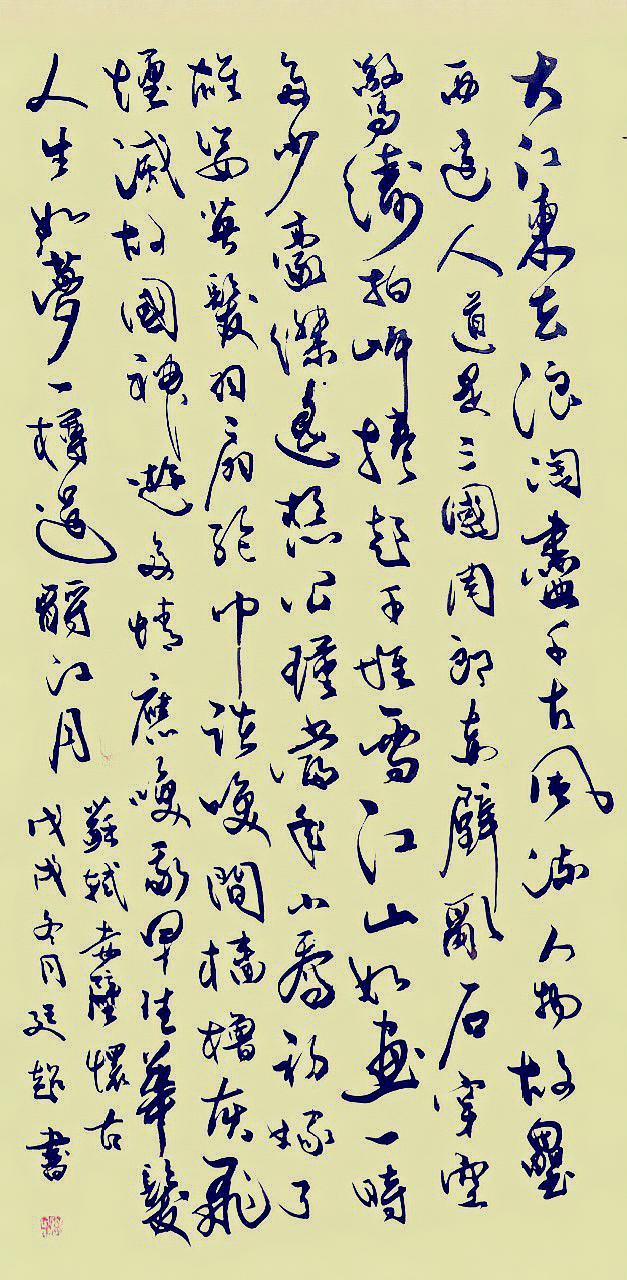 大江東去浪淘盡千古風流人物故壘
西邊人道是三國周郎赤壁亂石穿空
驚濤拍岸捲起千堆雪江山如畫一時
多少豪傑遙想公瑾當年小喬初嫁了
雄姿英髮羽扇綸巾談咲間檣櫓灰飛
煙滅故國神遊多情應咲我早生華髮
人生如夢一樽還酹江月
蘇軾赤壁懷古
戊戌冬月超書